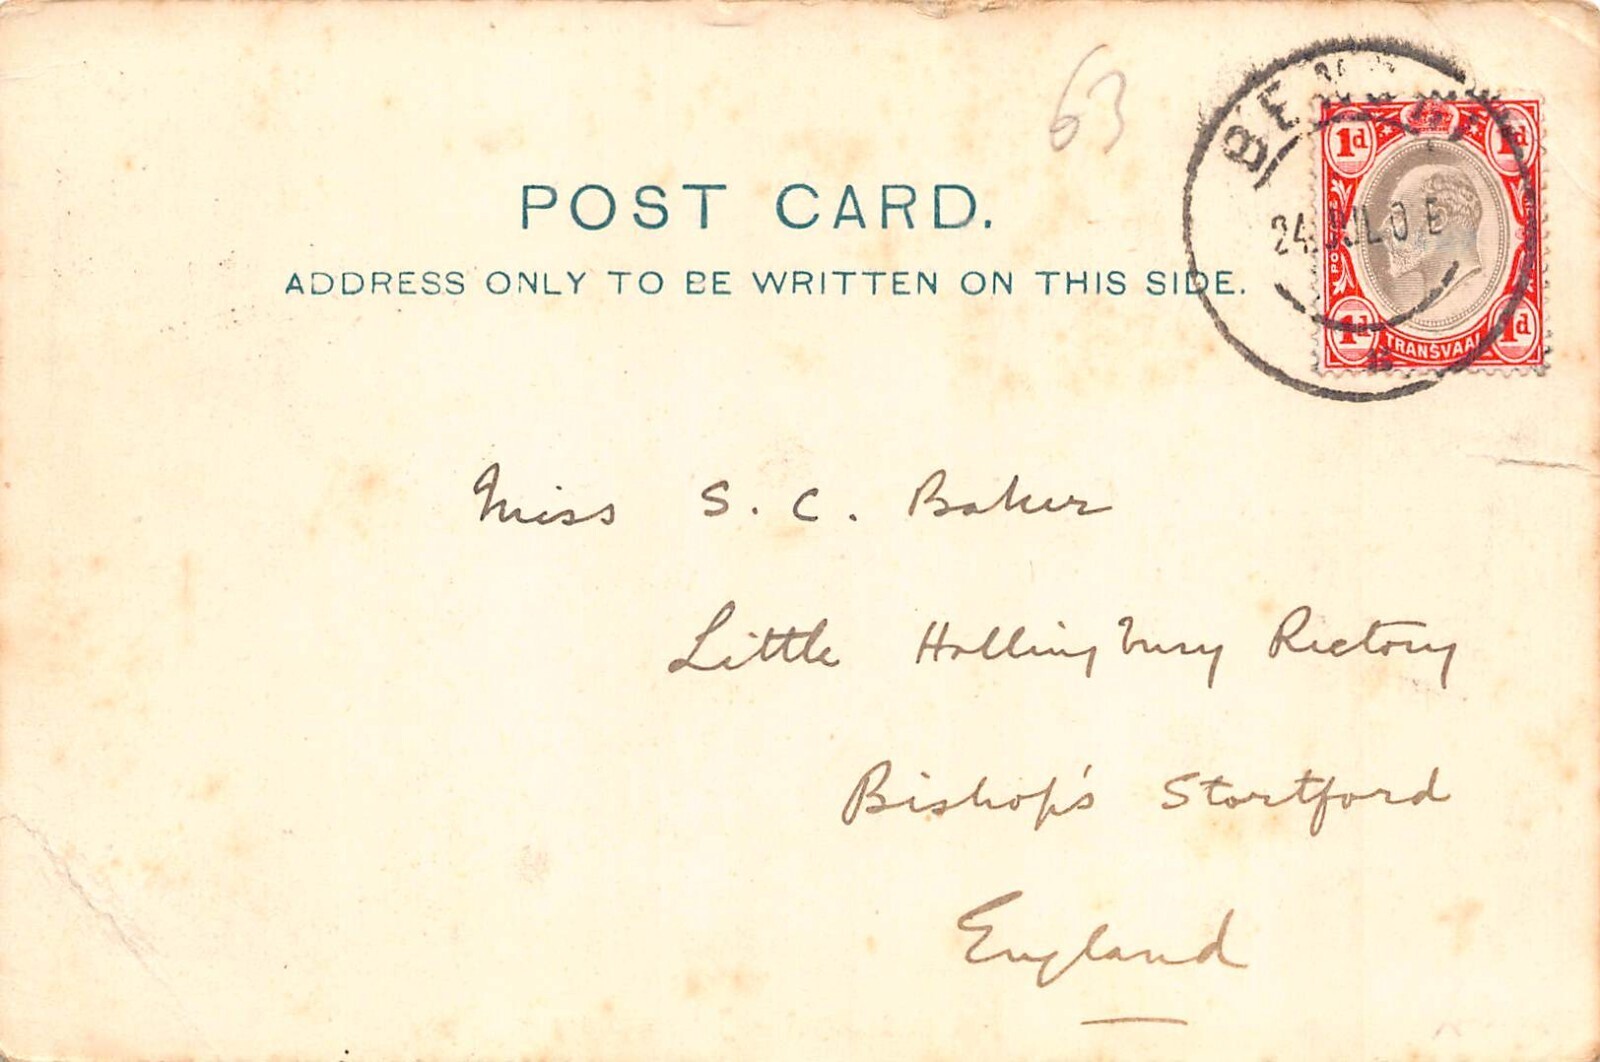 63
POST CARD.
ADDRESS ONLY TO BE WRITTEN ON THIS SIDE.
1d 1d
24 JUL 0
1d 1d
TRANSVAAL
B
Miss S. C. Baker
Little Hallingbury Rectory
Bishop's Stortford
England